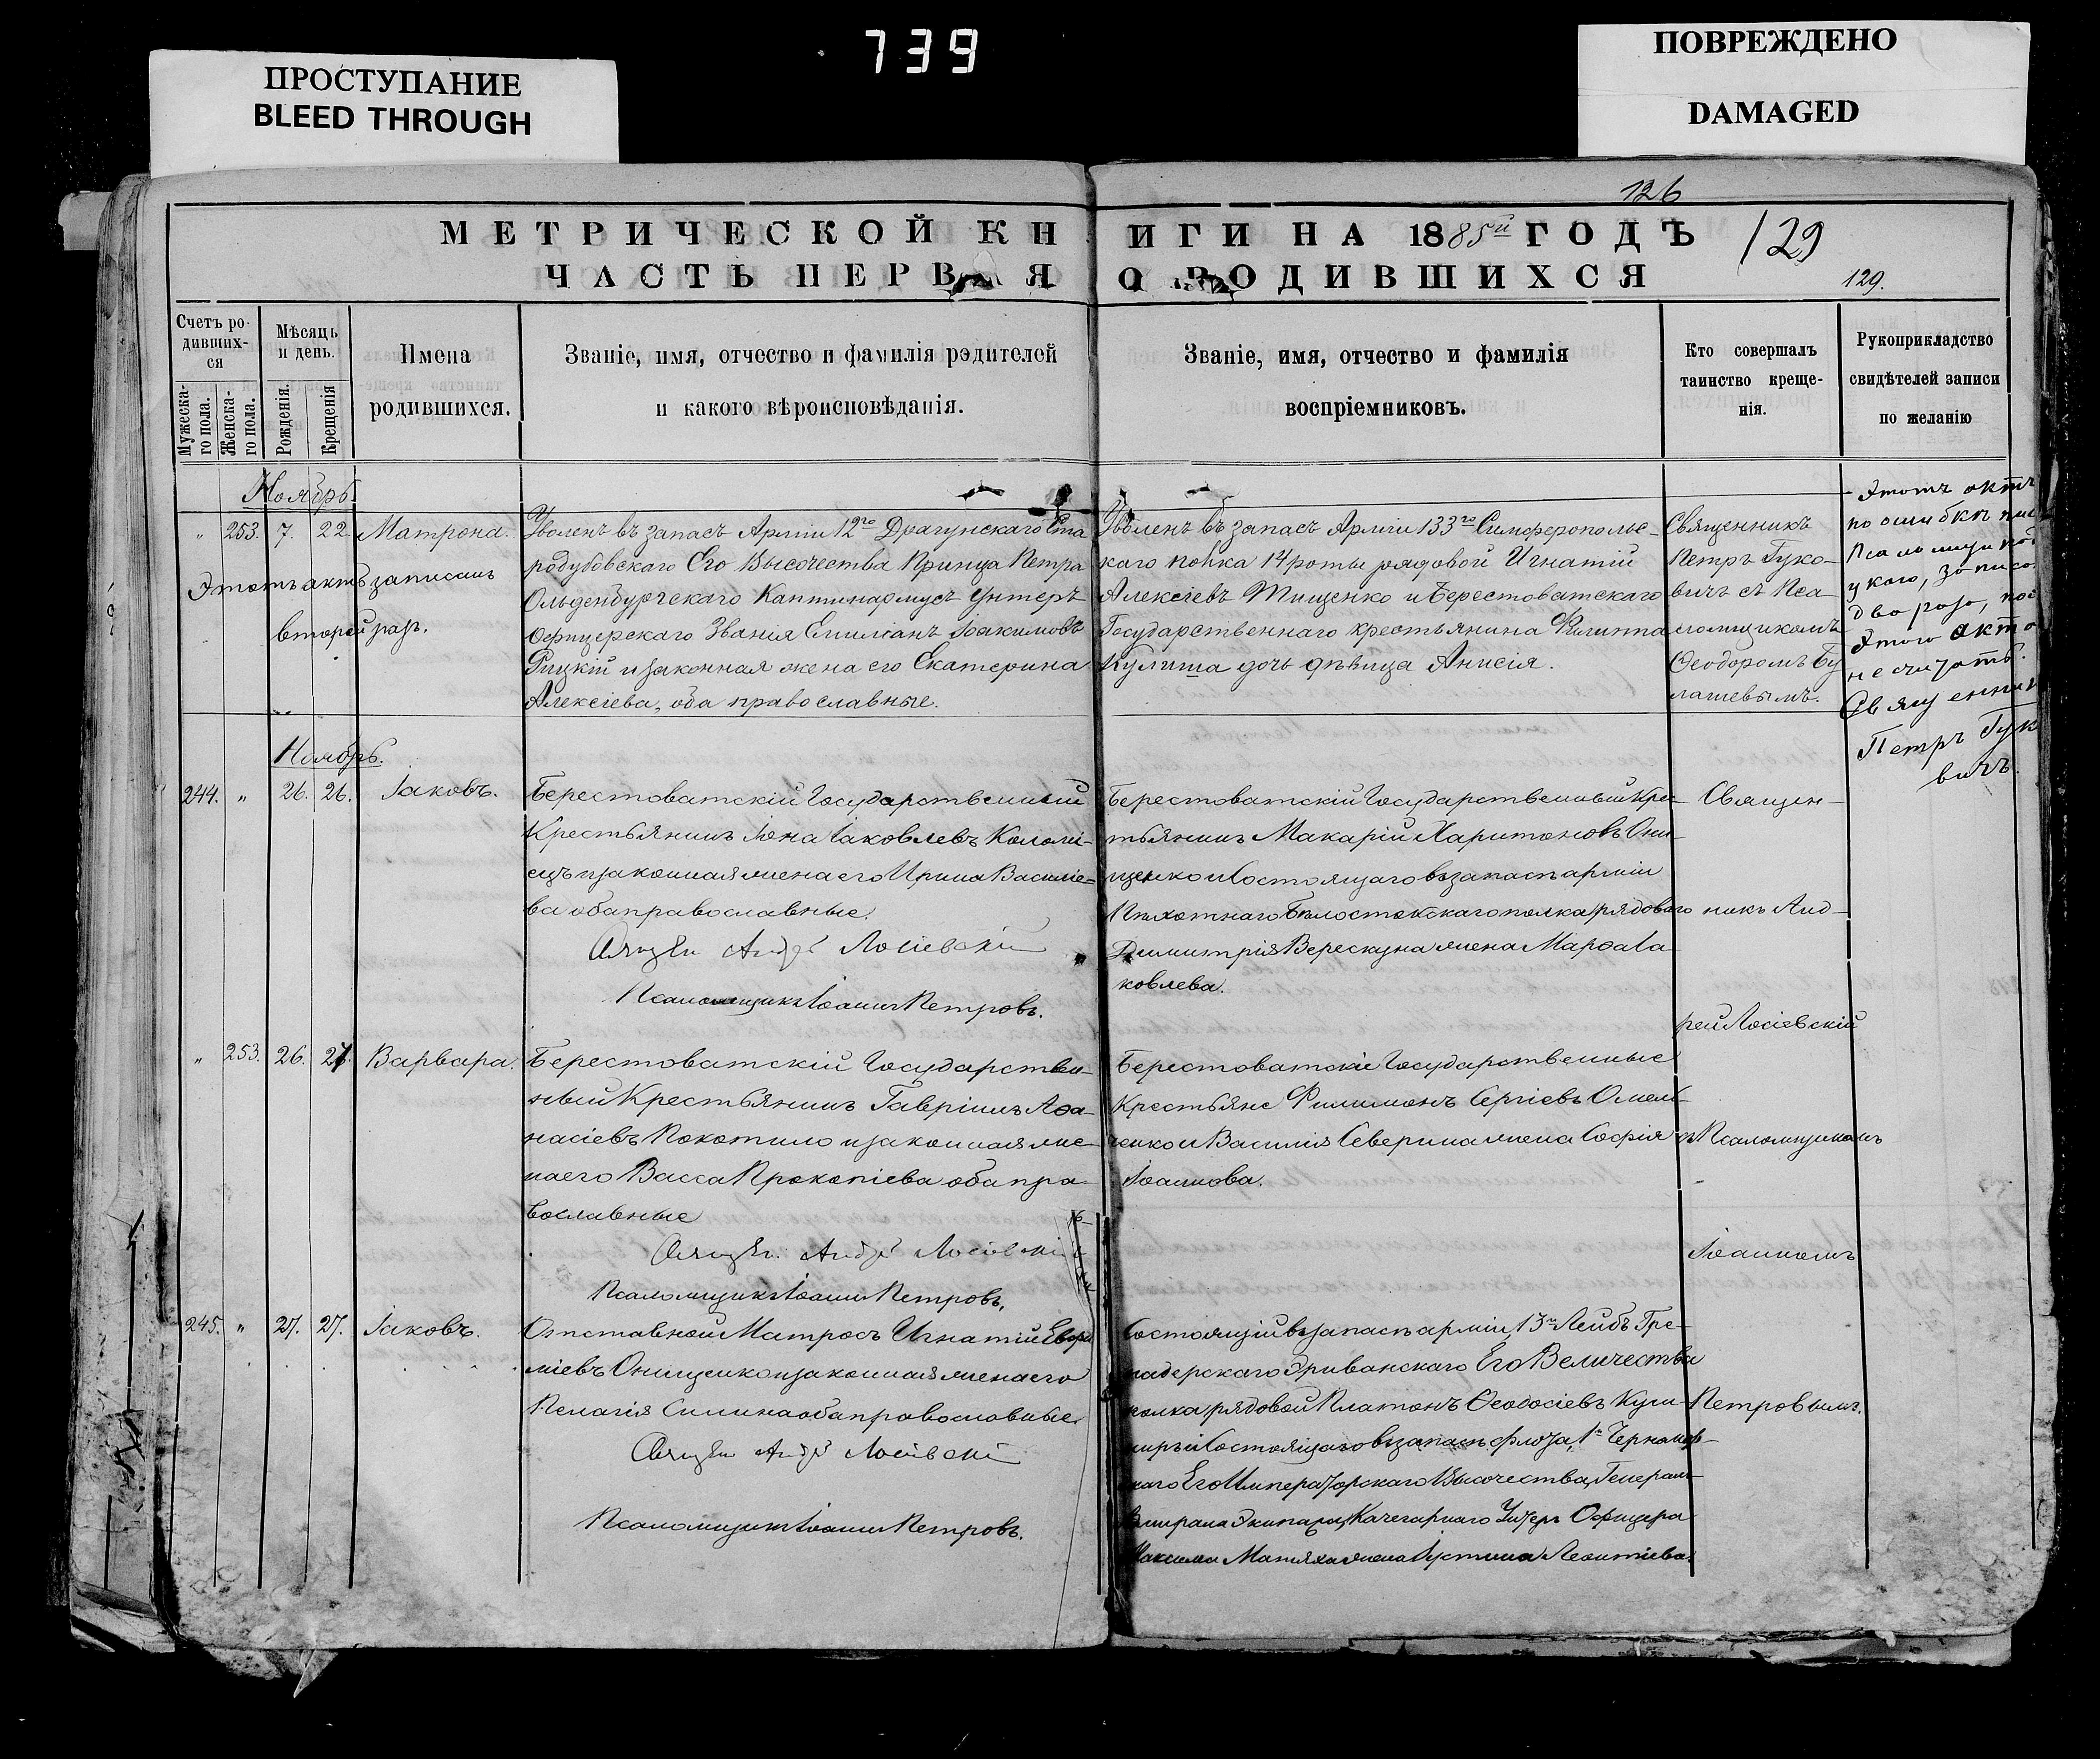 739
ПРОСТУПАНИЕ
BLEED THROUGH
ПОВРЕЖДЕНО
DAMAGED
126
МЕТРИЧЕСКОЙ КНИГИ НА 1885й ГОДЪ
129
ЧАСТЬ ПЕРВАЯ О РОДИВШИХСЯ
129.
Счетъ ро-
дивших-
ся
Мужеска-
го пола.
Женска-
го пола.
Мѣсяцъ
и день.
Рожденія.
Крещенія
Имена
родившихся.
Званіе, имя, отчество и фамилія родителей
и какого вѣроисповѣданія.
Званіе, имя, отчество и фамилія
воспріемниковъ.
Кто совершалъ
таинство креще-
нія.
Рукоприкладство
свидѣтелей записи
по желанію
Ноябрь
" 253. 7. 22. Матрона.
Этотъ актъ записанъ
второй разъ.
Уволенъ въ запасъ Арміи 12го Драгунскаго Ста
родубовскаго Его Высочества Принца Петра
Ольденбургскаго Каптинармусъ Унтеръ
Офицерскаго Званія Емиліанъ Іоакимовъ
Рицкій и законная жена его Екатерина
Алексіева, оба православные.
Уволенъ въ запасъ Арміи 133го Симферопольс-
каго полка 14 роты рядовой Игнатій
Алексіевъ Тищенко и Берестоватскаго
Государственнаго крестьянина Филиппа
Кулиша дочь дѣвица Анисія.
Священникъ
Петръ Гуко-
вичъ съ Пса-
ломщикомъ
Ѳеодоромъ Бу
лашевымъ.
Этотъ актъ
по ошибкѣ
двараза,
Этого акта
не считать.
Священник
Петръ Гук
вичъ.
Ноябрь.
244. " 26. 26. Іаковъ.
Берестоватскій Государственный
Крестьянинъ Іона Іаковлевъ Коломі-
ецъ и законная жена его Ирина Василіе-
ва оба православные.
Священ Андрей Лосіевскій
Псаломщикъ Іоаннъ Петровъ.
Берестоватскій Государственный Крес-
тьянинъ Макарій Харитоновъ Они-
щенко и Состоящаго въ запасѣ арміи
Пѣхотнаго Бѣлостокскаго полка, рядоваго
Димитрія Верескуна жена Марѳа Іа-
ковлева.
Священ-
никъ Анд-
рей Лосіевскій
" 253. 26. 27. Варвара.
Берестоватскій Государствен-
ный Крестьянинъ Гавріилъ Аѳа-
насіевъ Покотило и законная же-
на его Васса Прокопіева оба пра-
вославные
Священ. Андрей Лосіевскій
Псаломщикъ Іоаннъ Петровъ.
Берестоватскіе Государственные
Крестьяне Филимонъ Сергіевъ Омель-
ченко и Василія Северина жена Софія
Іоаннова.
съ Псаломщикомъ
Іоанномъ
245. " 27. 27. Іаковъ.
Отставной Матросъ Игнатій Евѳи
міевъ Онищенко и законная жена его
Пелагія Силина оба православные.
Священ Андрей Лосіевскі
Псаломщикъ Іоаннъ Петровъ.
Состоящій въ запасѣ арміи, 13го Лейбъ Гре-
надерскаго Эриванскаго Его Величества
полка, рядовой Платонъ Ѳеодосіевъ Куш-
ниръ и Состоящаго въ запасѣ флота, 1го Черномор-
скаго Его Императорскаго Высочества, Генерал-
Адмирала Экипажа, Качегарнаго Унтеръ Офицера
Максима жена Іустина Леонтіева.
Петровымъ.